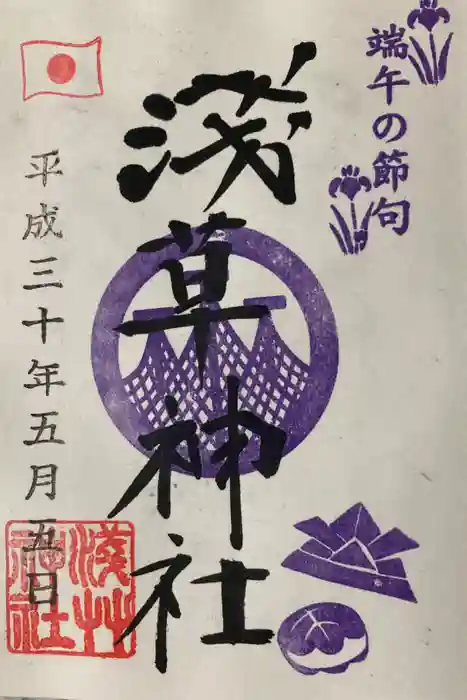 端午の節句
浅草神社
平成三十年五月五日
淺草
神社